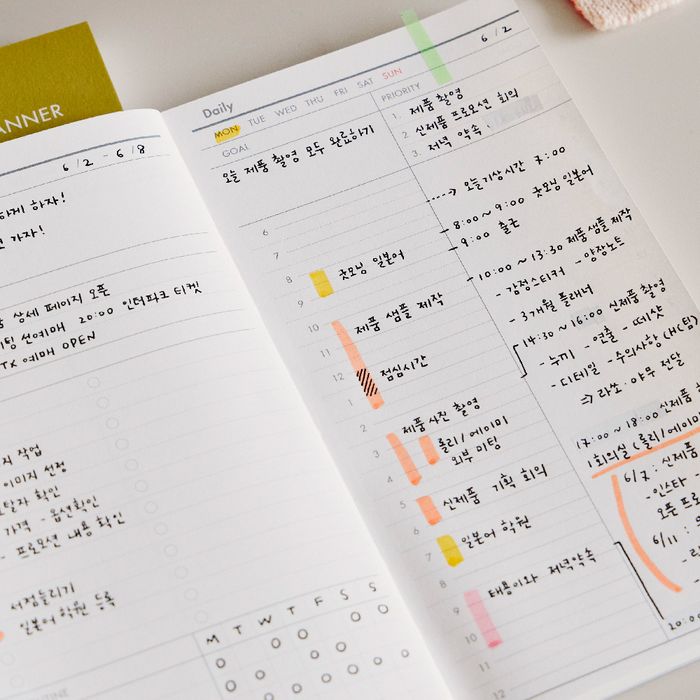 ANNER
6/2 - 6/8
하게 하자!
가자!
상세 페이지 오픈
팅 선예매 20:00 인터파크 티켓
TX 예매 OPEN
지 작업
이미지 선정
탈자 확인
가격 - 옵션확인
- 프로모션 내용 확인
서점들리기
일본어 학원 등록
M T W T F S S
TINE
Daily
6/2
MON TUE WED THU FRI SAT SUN
GOAL
오늘 제품 촬영 모두 완료하기
PRIORITY
1. 제품 촬영
2. 신제품 프로모션 회의
3. 저녁 약속.
6
7
8 굿모닝 일본어
9
10 제품 샘플 제작
11
12 점심시간
1
2 제품사진 촬영
3 롤리/에이미
4 외부 미팅
5 신제품 기획 회의
6
7 일본어 학원
8
9 태용이와 저녁약속
10
11
12
----> 오늘기상시간 7:00
- 8:00 ~ 9:00 굿모닝 일본어
- 9:00 출근
- 10:00 ~ 13:30 제품샘플 제작
- 감정스티커 - 양장노트
- 3개월 플래너
14:30 ~ 16:00 신제품 촬영
- 누끼 - 연출 - 떼샷
- 디테일 - 주의사항 (H(팀)
⇒ 라쏘·야무 전달
17:00 ~ 18:00 신제품
1회의실 (롤리/에이미
6/7 : 신제품
- 인스타
오픈 프로
6/11 :
20:0